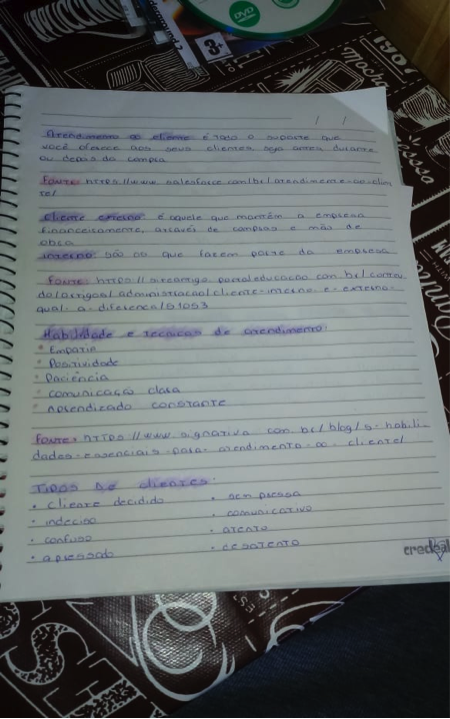 DVD
1907
Mocha
/ /
Atendimento ao cliente é todo o suporte que
você oferece aos seus clientes seja antes, durante
ou depois da compra
Fonte: https://www.salesforce.com/br/atendimento-ao-clien
te/
Cliente externo: é aquele que mantém a empresa
financeiramente, através de compras e mão de
obra
interno: são os que fazem parte da empresa
Fonte: https:// portaleducacao.com.br/conteu
do/artigos/administracao/cliente-interno-e-externo-
qual-a-diferenca/51053
Habilidade e tecnicas de atendimento:
• Empatia
• Positividade
• Paciência
• comunicação clara
• aprendizado constante
Fonte: https://www.signativa.com.br/blog/5-habili
dades-essenciais-para-atendimento-ao-cliente/
Tipos de clientes:
• cliente decidido
• indeciso
• confuso
• apressado
• sem pressa
• comunicativo
• atento
• desatento
credeal